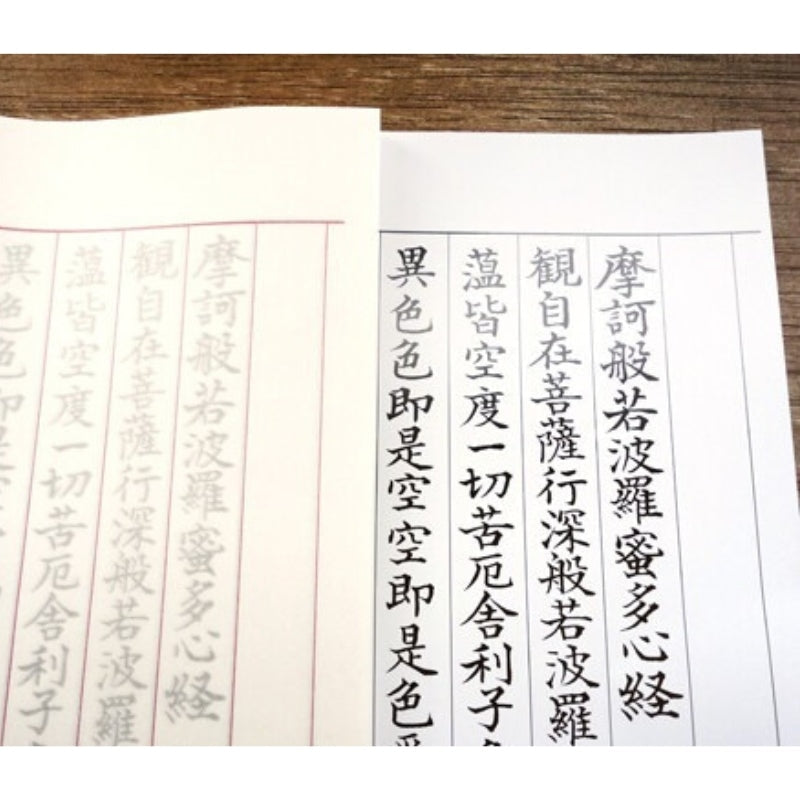 摩訶般若波羅蜜多心経
観自在菩薩行深般若波羅
薀皆空度一切苦厄舎利子
異色色即是空空即是色
摩訶般若波羅蜜多心経
観自在菩薩行深般若波羅
薀皆空度一切苦厄舎利子
異色色即是